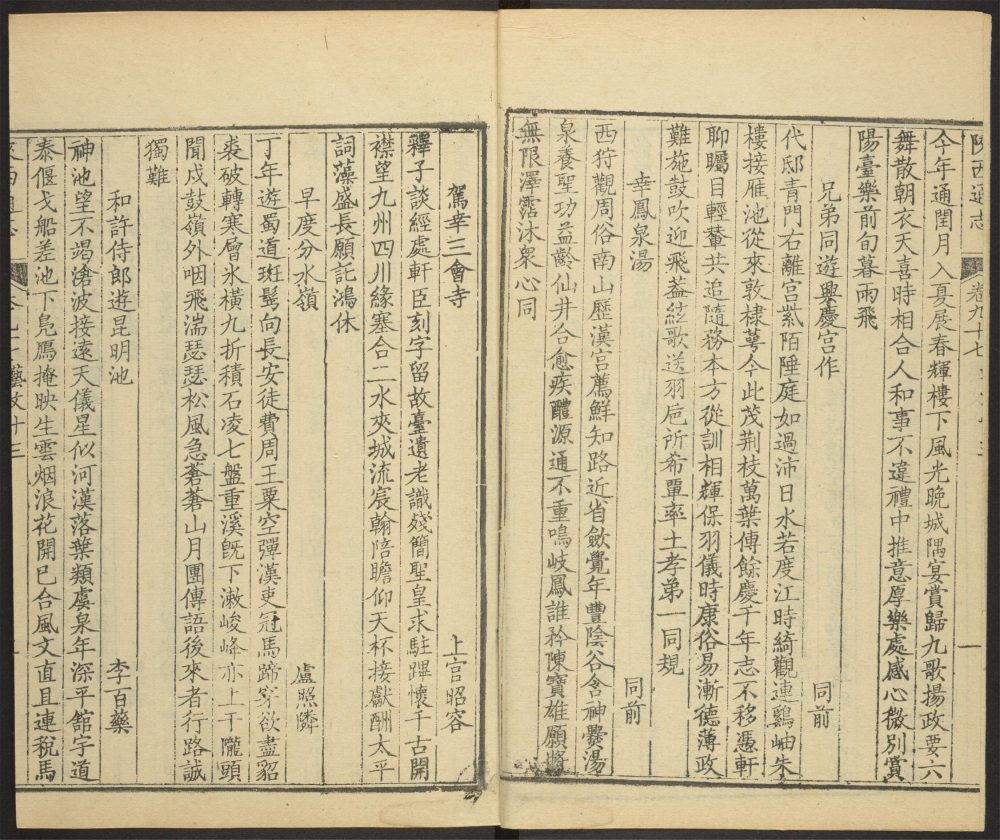 陝西通志 卷九十七
今年通閏月入夏展春輝樓下風光晚城隅宴賞歸九歌揚政要六
舞散朝衣天喜時相合人和事不違禮中推意厚樂處感心微別賞
陽臺樂前旬暮雨飛
兄弟同遊興慶宮作 同前
代邸青門右離宮紫陌陲庭如過沛日水若度江時綺觀連鷄岫朱
樓接雁池從來敦棣萼今此茂荆枝萬葉傳餘慶千年志不移憑軒
聊矚目輕輦共追隨務本方從訓相輝保羽儀時康俗易漸德薄政
難施鼓吹迎飛葢絃歌送羽巵所希覃率土孝弟一同規
幸鳳泉湯 同前
西狩觀周俗南山歷漢宫薦鮮知路近省斂覺年豐陰谷含神爨湯
泉養聖功益齡仙井合愈疾醴源通不重鳴岐鳳誰矜陳寶雄願將
無限澤霑沐衆心同
駕幸三會寺 上官昭容
釋子談經處軒臣刻字留故臺遺老識殘簡聖皇求駐蹕懷千古開
襟望九州四川緣塞合二水夾城流宸翰陪瞻仰天杯接獻酬太平
詞藻盛長願記鴻休
早度分水嶺 盧照隣
丁年遊蜀道斑鬂向長安徒費周王粟空彈漢吏冠馬蹄穿欲盡貂
裘破轉寒曾氷橫九折積石凌七盤重溪旣下漱峻峰亦上干隴頭
聞戍鼓嶺外咽飛湍瑟瑟松風急蒼蒼山月團傳語後來者行路誠
獨難
和許侍郎遊昆明池 李百藥
神池望不竭滄波接遠天儀星似河漢落葉類虞泉年深平館宇道
泰偃戈船差池下鳧鴈掩映生雲烟浪花開已合風文直且連稅馬
藝文十三